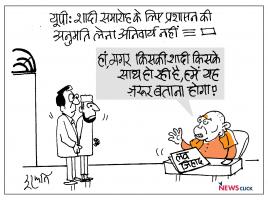 यूपी: शादी समारोह के लिए प्रशासन की
अनुमति लेना अनिवार्य नहीं
हां, मगर किसकी शादी किसके
साथ हो रही है, हमें यह
ज़रूर बताना होगा?
लव
जिहाद
इरफ़ान
NEWSCLICK